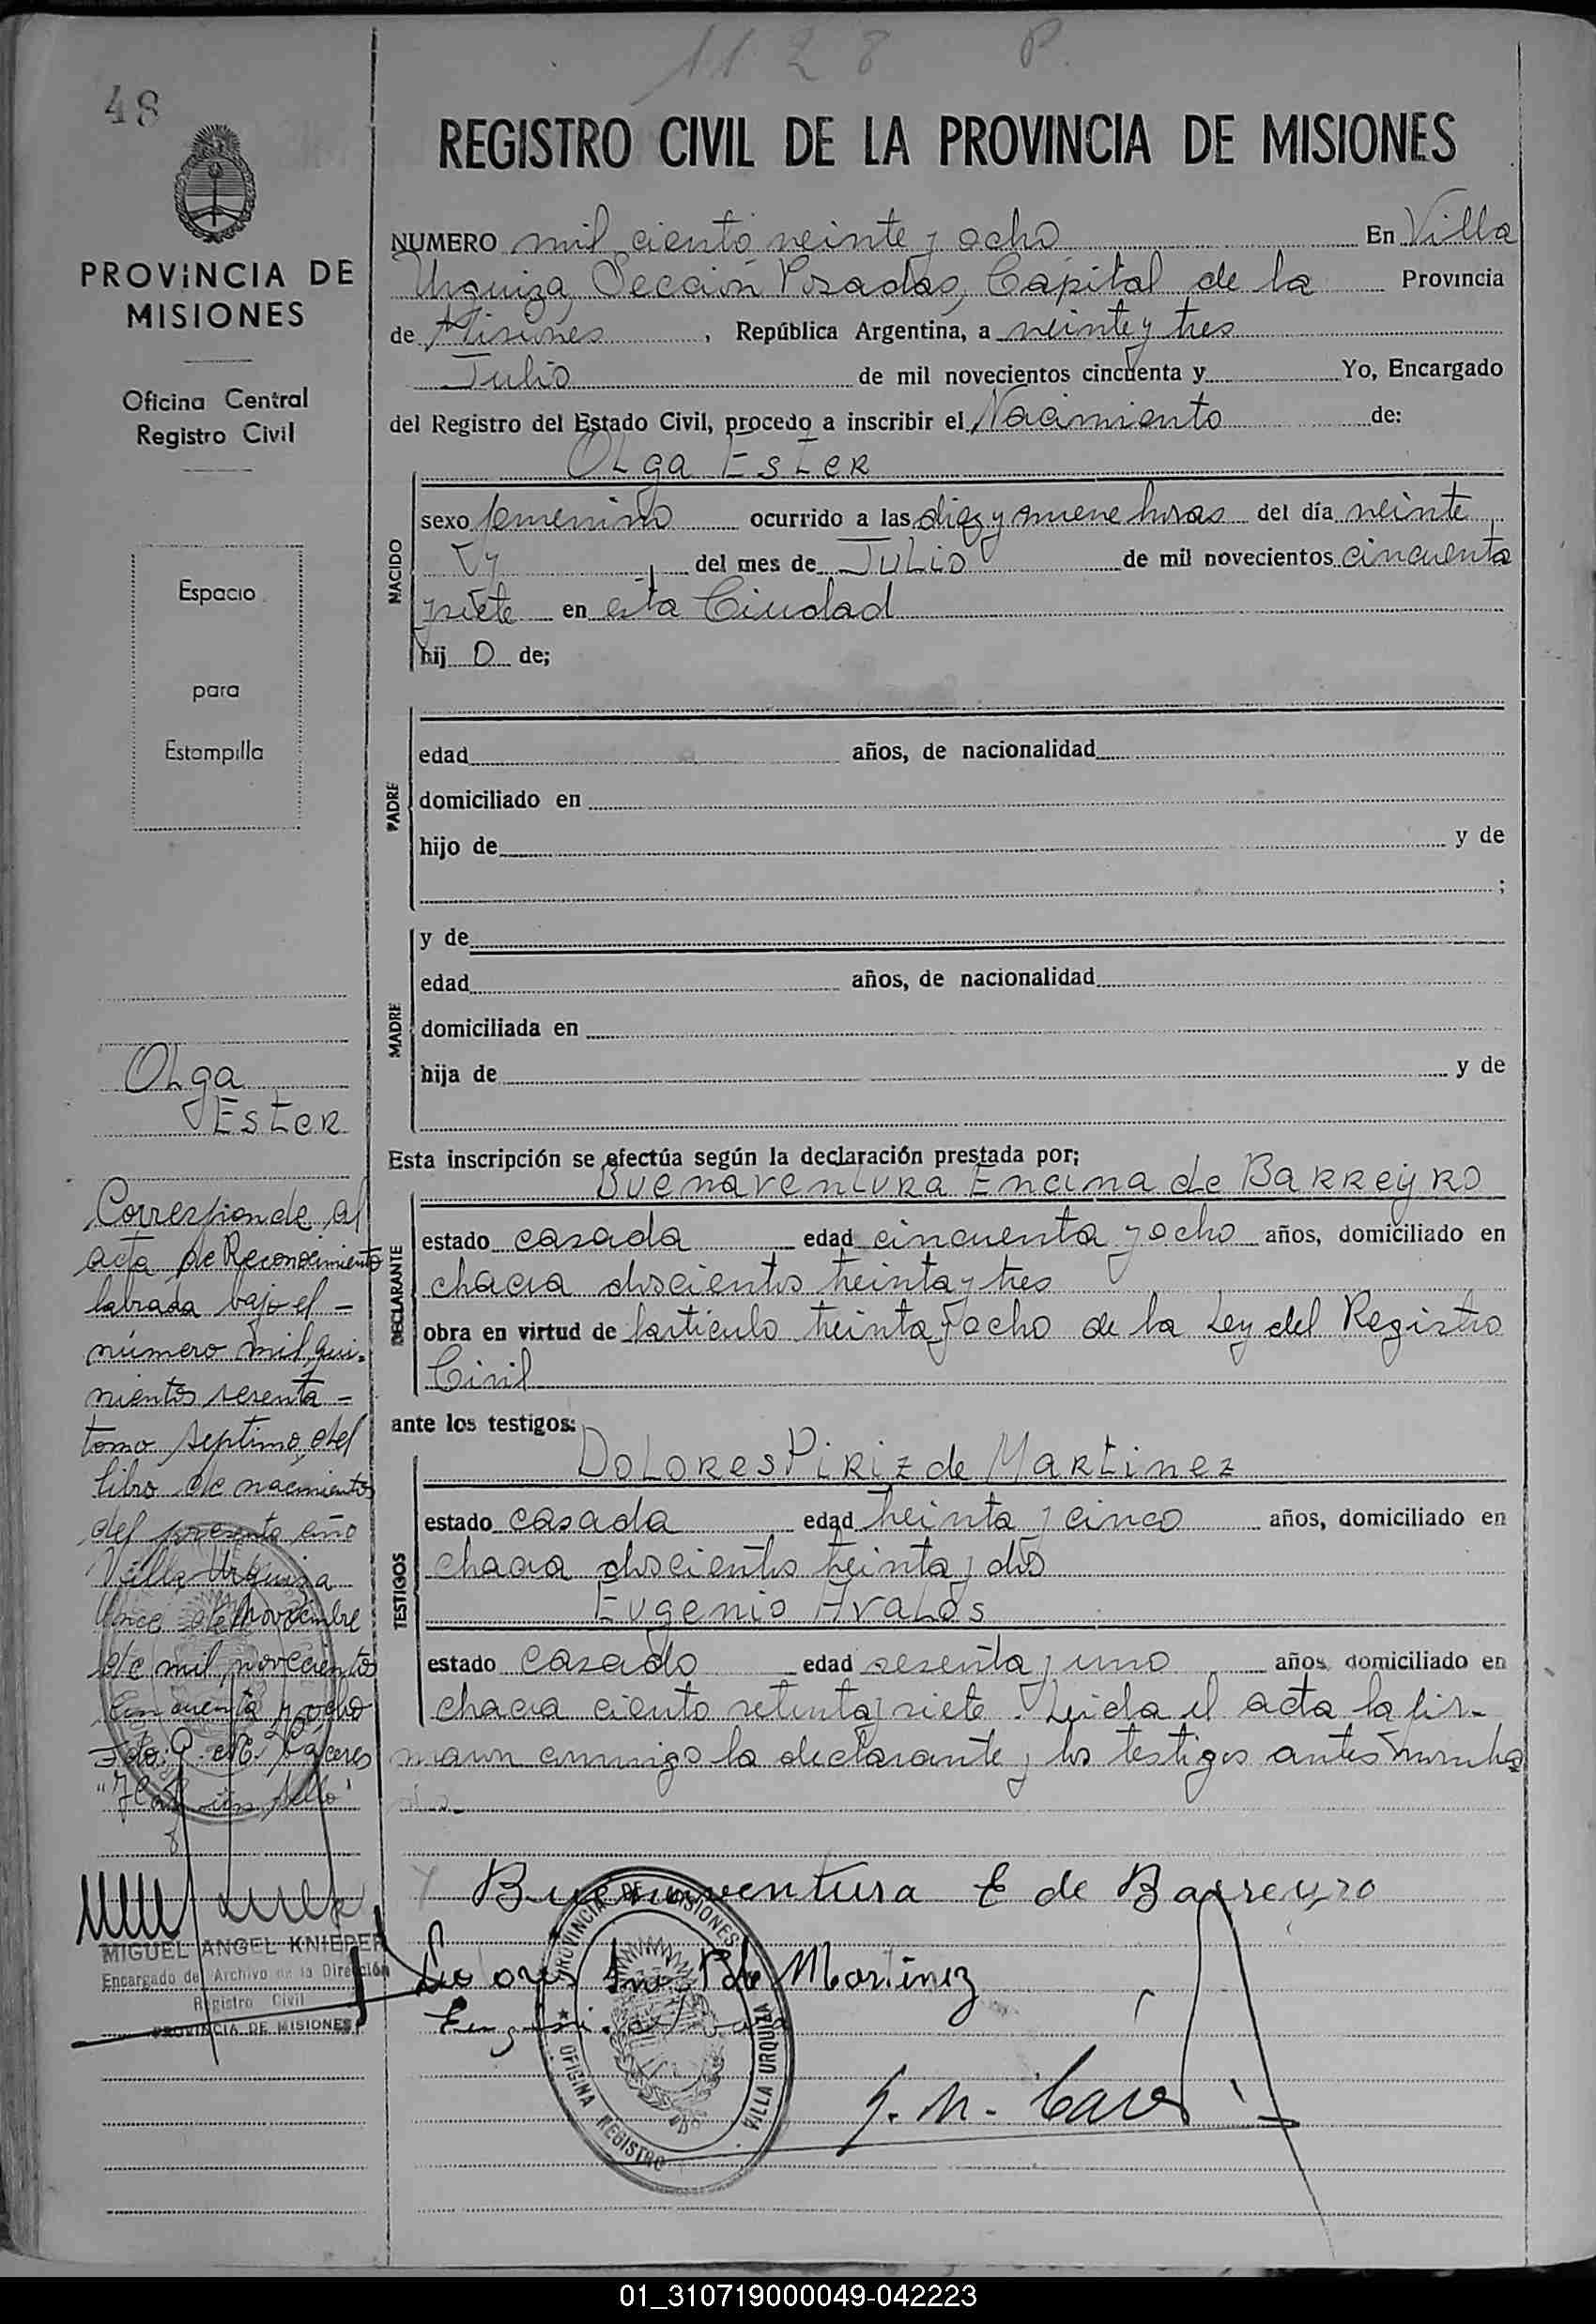 1128 P.
48
REGISTRO CIVIL DE LA PROVINCIA DE MISIONES
PROVINCIA DE
MISIONES
Oficina Central
Registro Civil
Espacio
para
Estampilla
NUMERO mil ciento veinte y ocho En Villa
Urquiza, Sección Posadas, Capital de la Provincia
de Misiones, República Argentina, a veinte y tres
Julio de mil novecientos cincuenta y Yo, Encargado
del Registro del Estado Civil, procedo a inscribir el Nacimiento de:
Olga Ester
NACIDO
sexo femenino ocurrido a las diez y nueve horas del día veinte
del mes de Julio de mil novecientos cincuenta
y siete en esta Ciudad
hij o de;
PADRE
edad años, de nacionalidad
domiciliado en
hijo de y de
;
MADRE
y de
edad años, de nacionalidad
domiciliada en
hija de y de
Esta inscripción se efectúa según la declaración prestada por;
Buenaventura Encina de Barreyro
DECLARANTE
estado casada edad cincuenta y ocho años, domiciliado en
chacra doscientos treinta y tres
obra en virtud de l'artículo treinta y ocho de la Ley del Registro
Civil
ante los testigos:
Dolores Piriz de Martinez
TESTIGOS
estado casada edad treinta y cinco años, domiciliado en
chacra doscientos treinta y dos
Eugenio Avalos
estado casado edad sesenta y uno años, domiciliado en
chacra ciento setenta y siete. Leida el acta la fir-
maron conmigo la declarante y los testigos antes nombra
dos-
Olga
Ester
Corresponde al
acta de Reconocimiento
labrada bajo el -
número mil qui-
nientos sesenta -
tomo septimo del
libro de nacimientos
del presente año
Villa Urquiza
once de noviembre
de mil novecientos
cincuenta y ocho
Fdo: Caceres
"Hay un sello"
MIGUEL ANGEL KNIEPER
Encargado del Archivo de la Dirección
Registro Civil
PROVINCIA DE MISIONES
Buenaventura E de Barreyro
Martinez
PROVINCIA DE MISIONES
OFICINA REGISTRO
VILLA URQUIZA
01_310719000049-042223